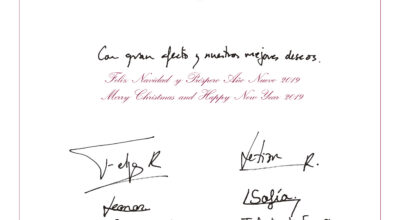 Con gran afecto y nuestros mejores deseos.
Feliz Navidad y Próspero Año Nuevo 2019
Merry Christmas and Happy New Year 2019
Felipe R Letizia R.
Leonor Sofía